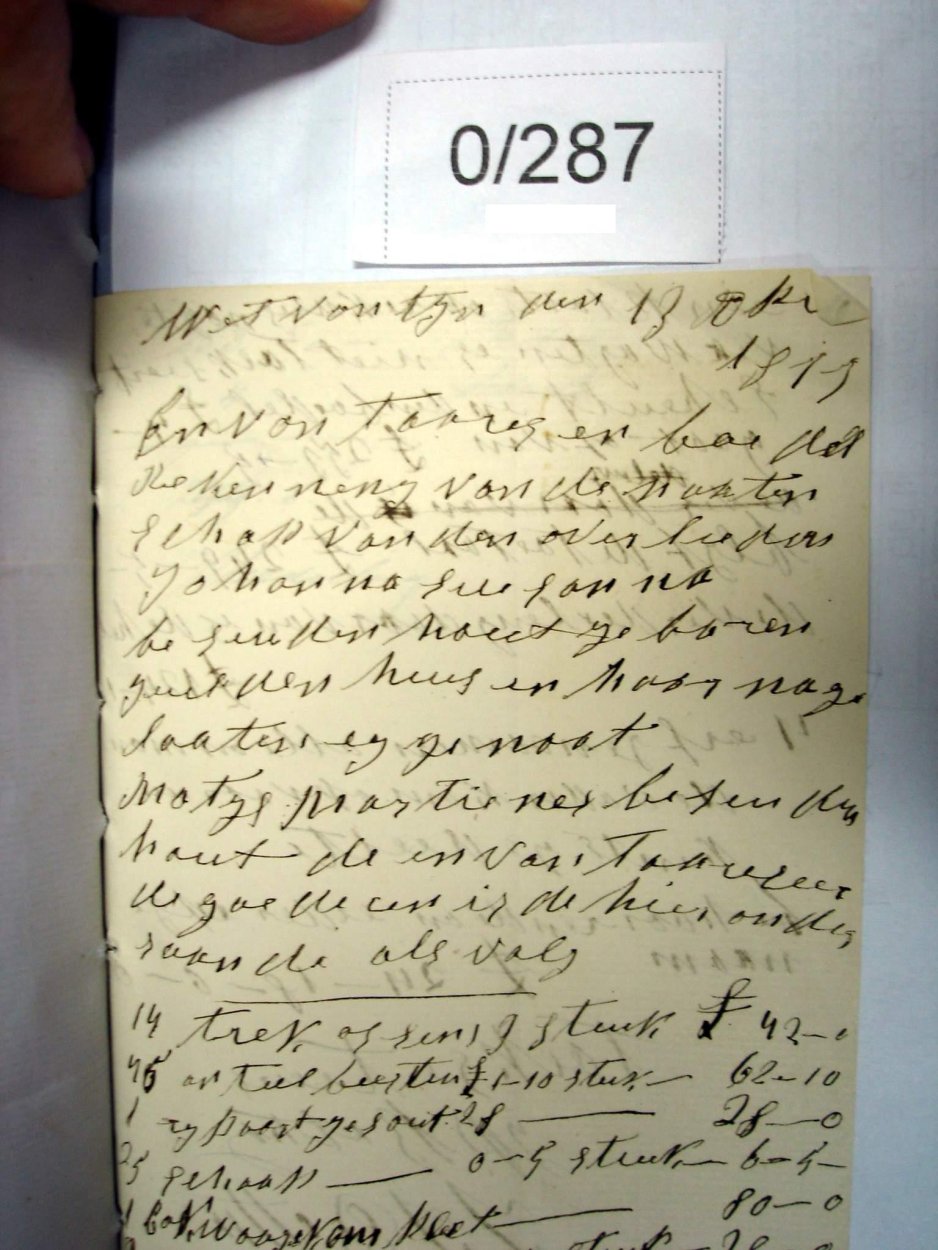 0/287
Wet vontyn den 13 Okr
1879
En von Taares en boe del
Rekenneng van de naaten
schap van den over lieden
Johanna Susanna
beseuden hout geboren
hues en haar nage
laaten eggenoot
Matys martienes beseuden
hout de en von Taareseer
de goedeeen is de hier onder
raande als volg
14 trek ossen 3 stuk £ 42-0
an teel beesten £1-10 stuk 62-10
1 ry paart gesout 28 28-0
25 schaap 0-5 stuk 6-5-
1 bok waa kom pleet 80-0